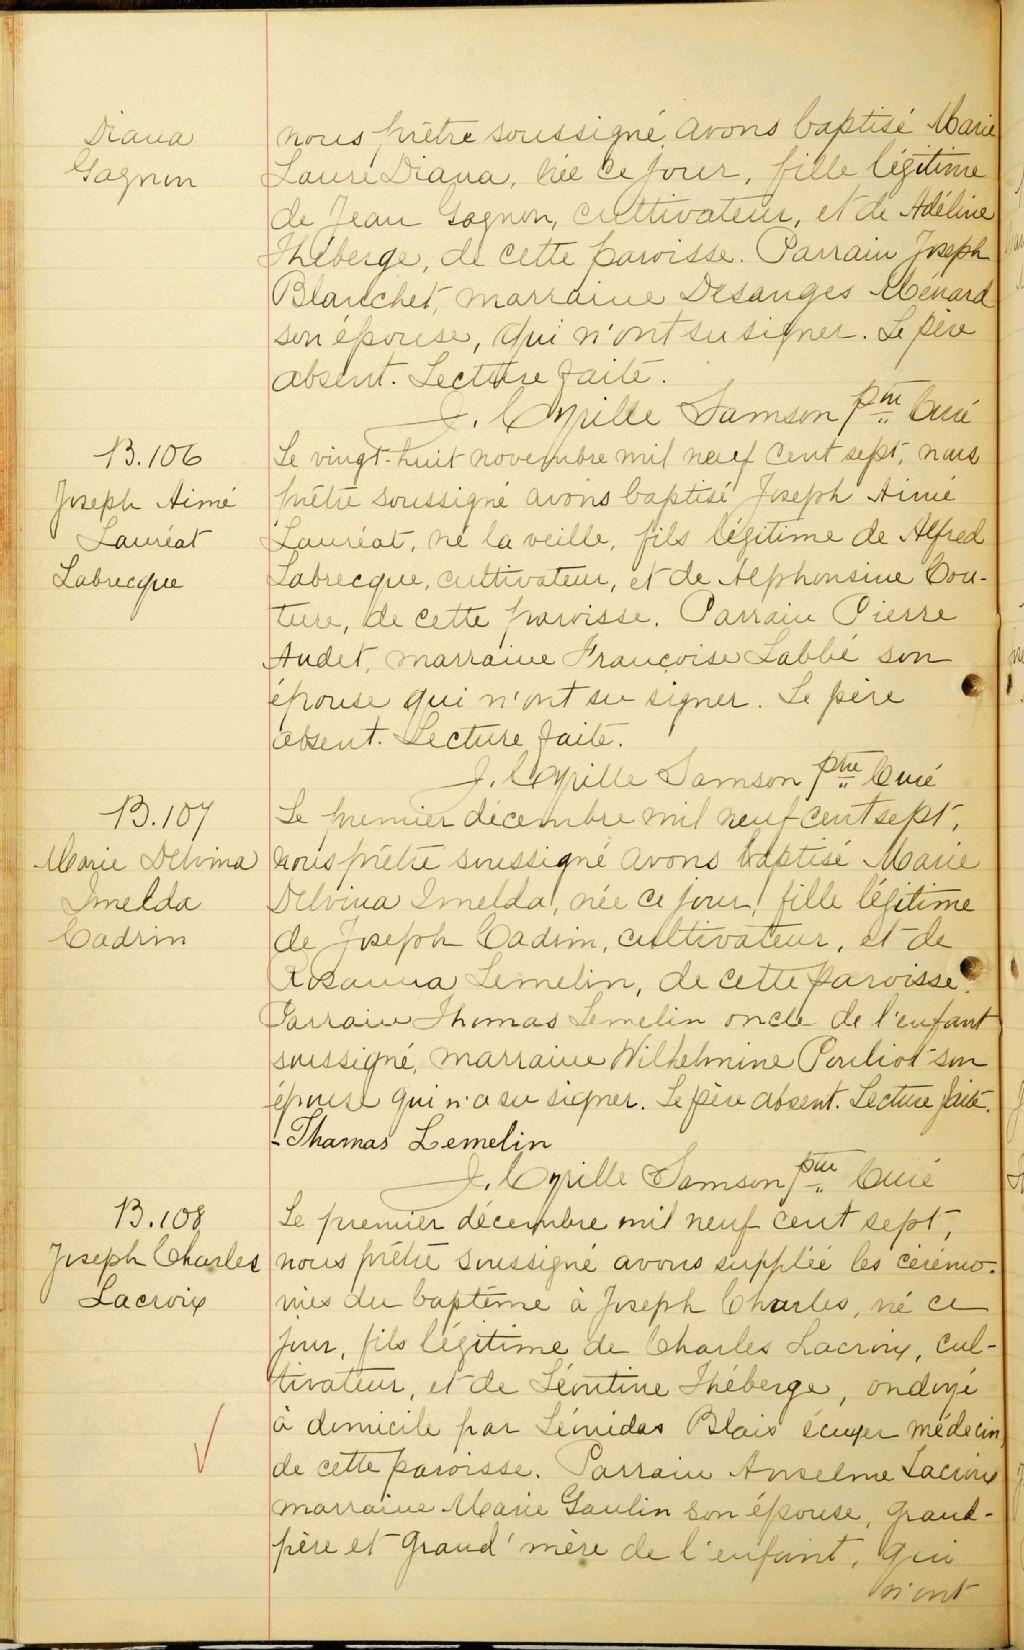 Diana
Gagnon
nous prêtre soussigné avons baptisé Marie
Laure Diana, née ce jour, fille légitime
de Jean Gagnon, cultivateur, et de Adéline
Théberge, de cette paroisse. Parrain Joseph
Blanchet, marraine Desanges Ménard
son épouse, qui n'ont su signer. Le père
absent. Lecture faite.
J. Cyrille Samson ptre Curé
B.106
Joseph Aimé
Lauréat
Labrecque
Le vingt-huit novembre mil neuf cent sept, nous
prêtre soussigné avons baptisé Joseph Aimé
Lauréat, né la veille, fils légitime de Alfred
Labrecque, cultivateur, et de Alphonsine Cou-
ture, de cette paroisse. Parrain Pierre
Audet, marraine Françoise Labbé son
épouse qui n'ont su signer. Le père
absent. Lecture faite.
J. Cyrille Samson ptre Curé
B.107
Marie Delvina
Imelda
Cadrin
Le premier décembre mil neuf cent sept,
nous prêtre soussigné avons baptisé Marie
Delvina Imelda, née ce jour, fille légitime
de Joseph Cadrin, cultivateur, et de
Rosanna Lemelin, de cette paroisse.
Parrain Thomas Lemelin oncle de l'enfant
soussigné, marraine Wilhelmine Pouliot son
épouse qui n'a su signer. Le père absent. Lecture faite.
- Thomas Lemelin
J. Cyrille Samson ptre Curé
B.108
Joseph Charles
Lacroix
Le premier décembre mil neuf cent sept,
nous prêtre soussigné avons suppléé les cérémo-
nies du baptême à Joseph Charles, né ce
jour, fils légitime de Charles Lacroix, cul-
tivateur, et de Léontine Théberge, ondoyé
à domicile par Léonidas Blais écuyer médecin,
de cette paroisse. Parrain Anselme Lacroix
marraine Marie Gaulin son épouse, grand-
père et grand'mère de l'enfant, qui
n'ont